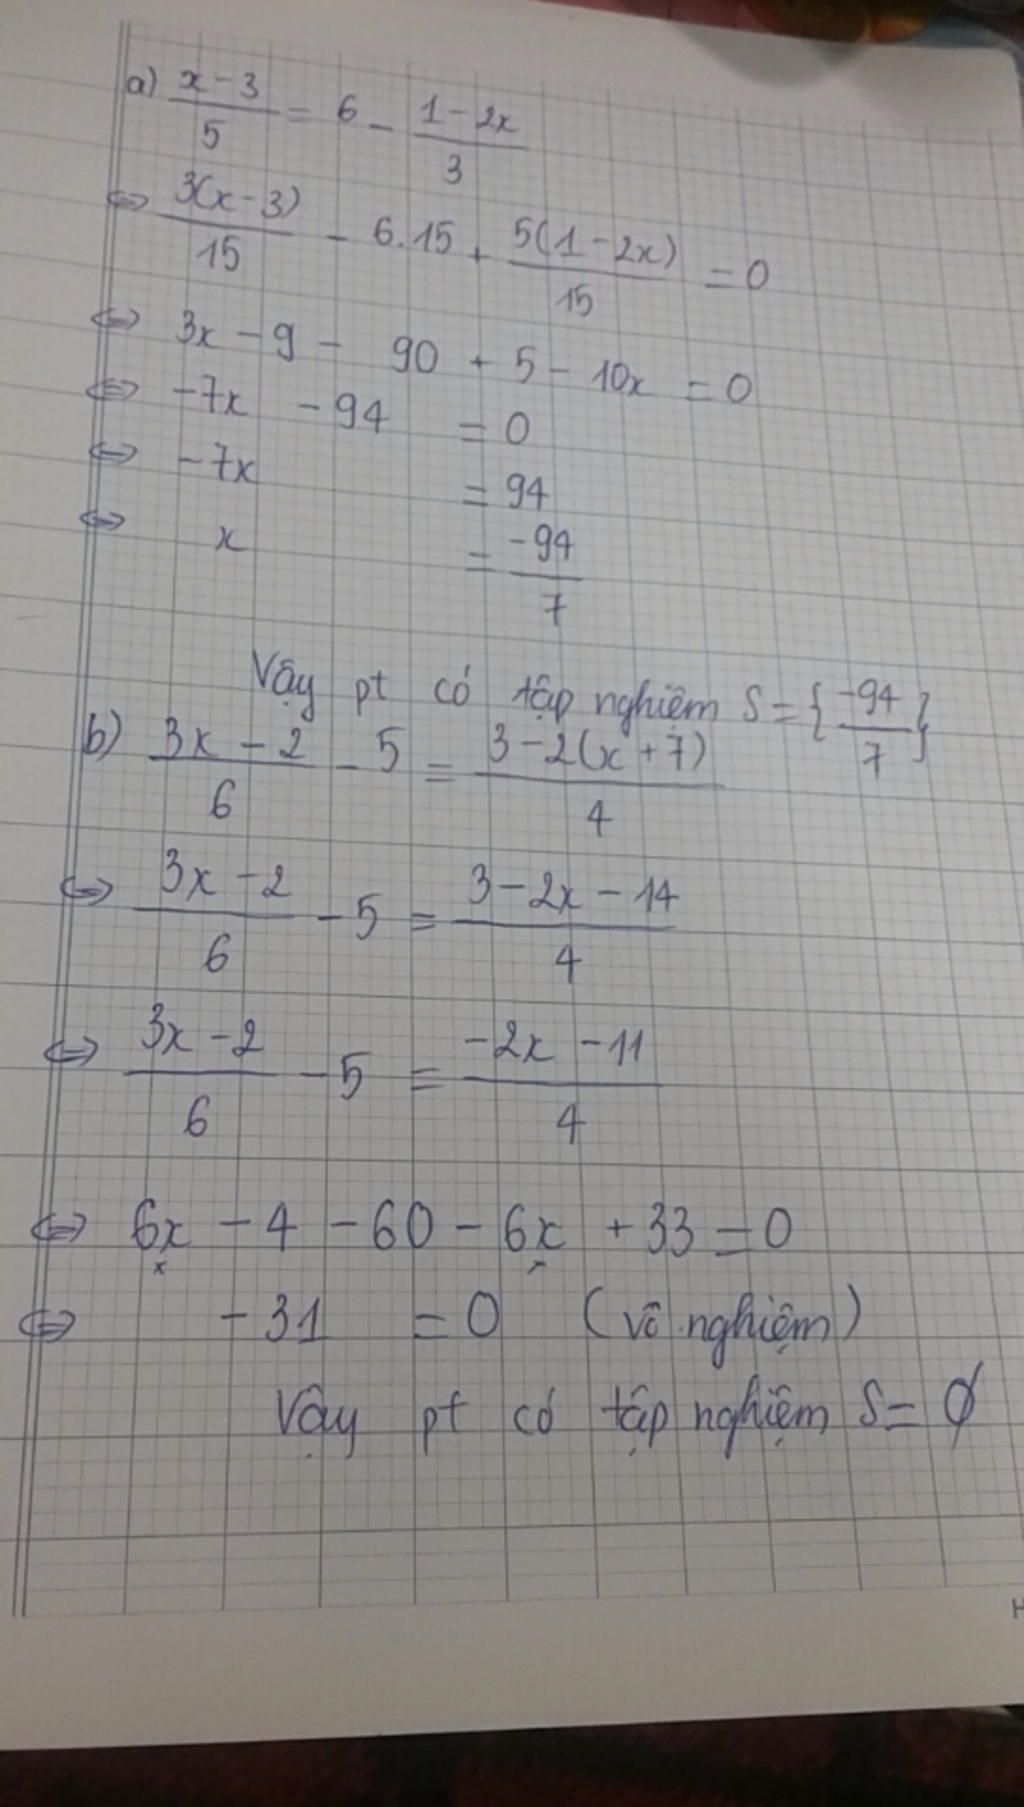 a) (x-3)/5 = 6 - (1-2x)/3
⇔ 3(x-3)/15 - 6.15 + 5(1-2x)/15 = 0
⇔ 3x - 9 - 90 + 5 - 10x = 0
⇔ -7x - 94 = 0
⇔ -7x = 94
⇔ x = -94/7
Vậy pt có tập nghiệm S = {-94/7}
b) (3x-2)/6 - 5 = (3-2(x+7))/4
⇔ (3x-2)/6 - 5 = (3-2x-14)/4
⇔ (3x-2)/6 - 5 = (-2x-11)/4
⇔ 6x - 4 - 60 - 6x + 33 = 0
⇔ -31 = 0 (vô nghiệm)
Vậy pt có tập nghiệm S = ∅